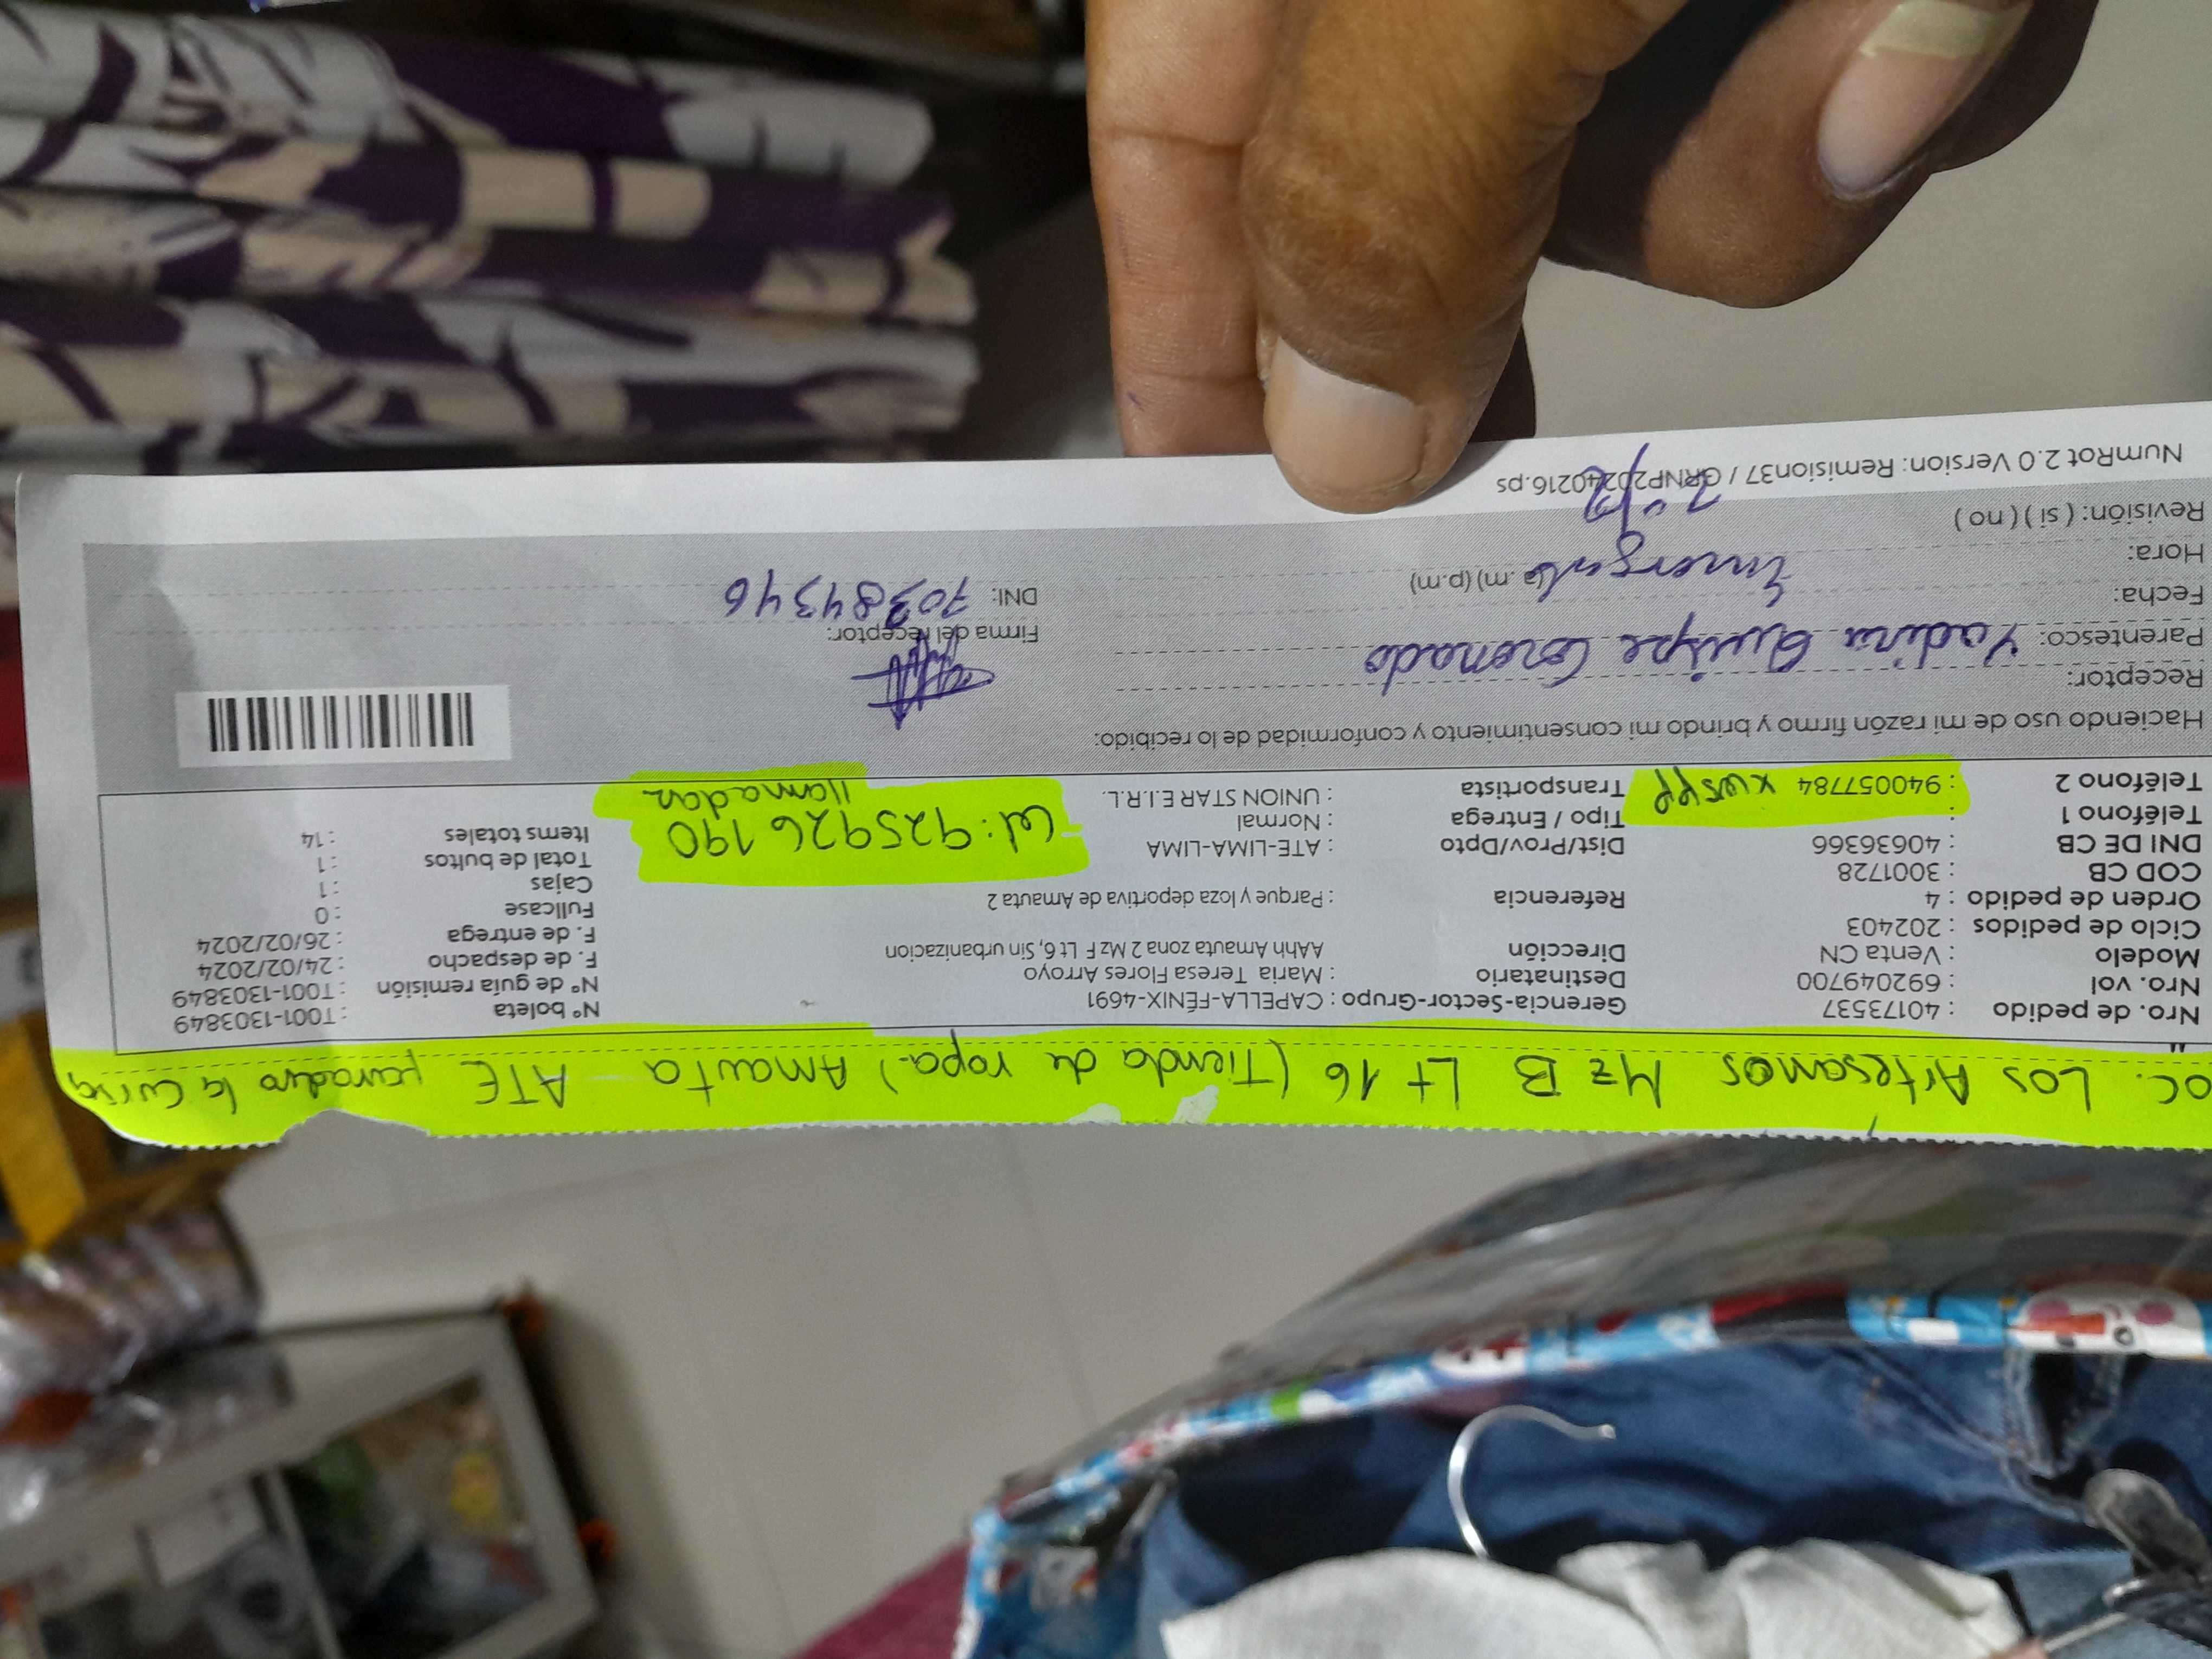 oc: Los Artesamos Mz B Lt 16 (Tienda de ropa.) Amauta - ATE paradro la curva
Nro. de pedido : 40173537
Nro. vol : 692049700
Modelo : Venta CN
Ciclo de pedidos : 202403
Orden de pedido : 4
COD CB : 3001728
DNI DE CB : 40636366
Teléfono 1 :
Teléfono 2 : 940057784 x wspp
Gerencia-Sector-Grupo : CAPELLA-FÉNIX-4691
Destinatario : Maria Teresa Flores Arroyo
Dirección AAhh Amauta zona 2 Mz F Lt 6, Sin urbanizacion
Referencia : Parque y loza deportiva de Amauta 2
Dist/Prov/Dpto : ATE-LIMA-LIMA
Tipo / Entrega : Normal
Transportista : UNION STAR E.I.R.L.
Cel: 925926190
llamadas
N° boleta : T001-1303849
N° de guía remisión : T001-1303849
F. de despacho : 24/02/2024
F. de entrega : 26/02/2024
Fullcase : 0
Cajas : 1
Total de bultos : 1
Items totales : 14
Haciendo uso de mi razón firmo y brindo mi consentimiento y conformidad de lo recibido:
Receptor:
Parentesco: Yadira Quispe Coronado
Fecha:
Hora: Encargado (a.m) (p.m)
Revisión: ( si ) ( no )
Firma del receptor:
DNI: 70384346
NumRot 2.0 Version: Remision37 / GRNP20240216.ps